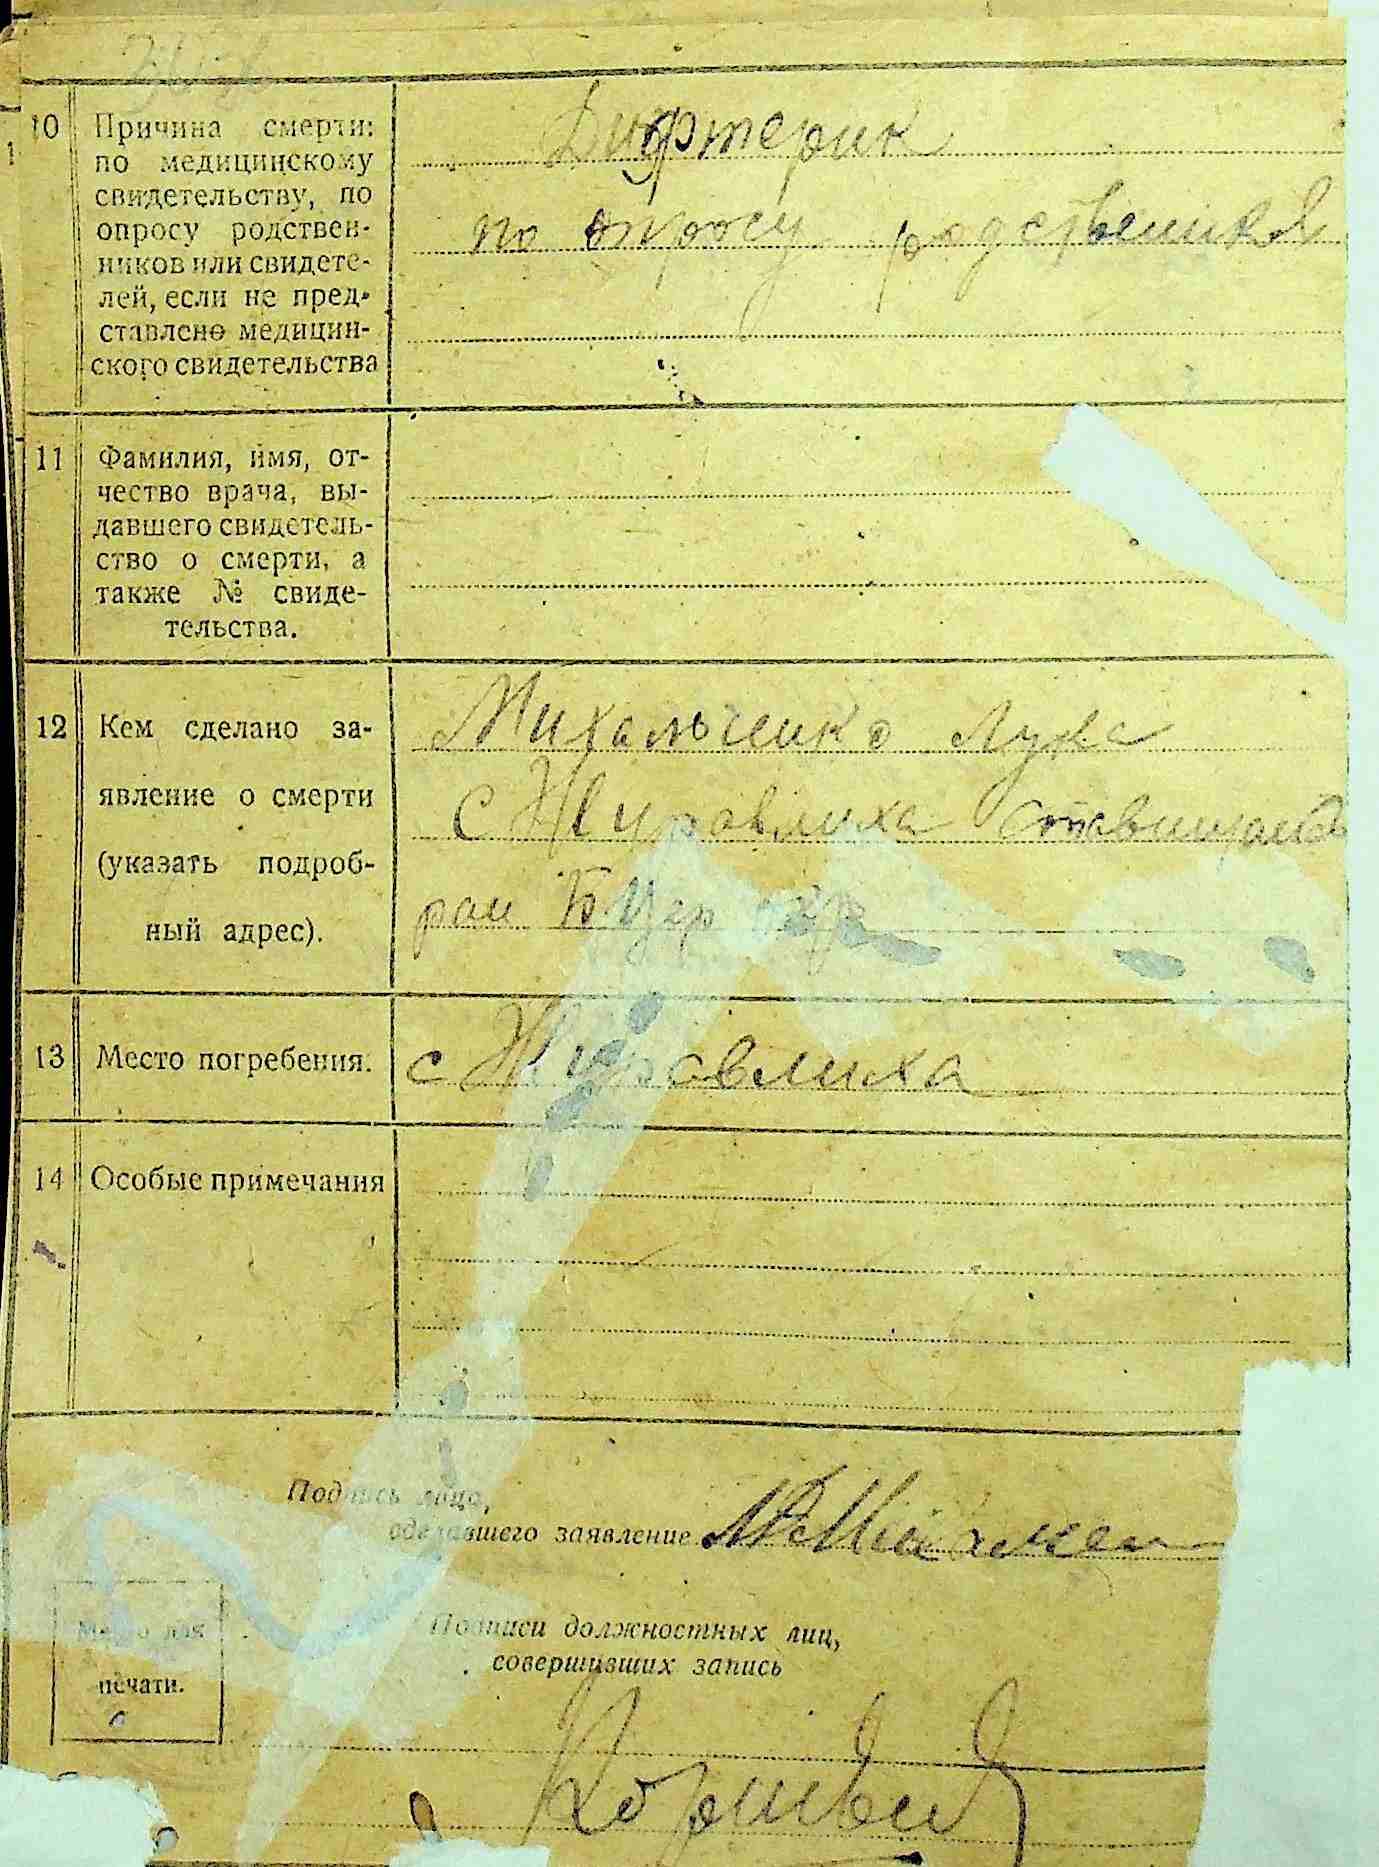 10 Причина смерти:
по медицинскому
свидетельству, по
опросу родствен-
ников или свидете-
лей, если не пред-
ставлено медицин-
ского свидетельства
Дифтерик
по опросу родственика
11 Фамилия, имя, от-
чество врача, вы-
давшего свидетель-
ство о смерти, а
также № свиде-
тельства.
12 Кем сделано за-
явление о смерти
(указать подроб-
ный адрес).
Михальченко Лука
с Журавлиха
рай Б Цер окр
13 Место погребения.
с Журавлиха
14 Особые примечания
Подпись лица,
сделавшего заявление
Подписи должностных лиц,
совершивших запись
Место для
печати.